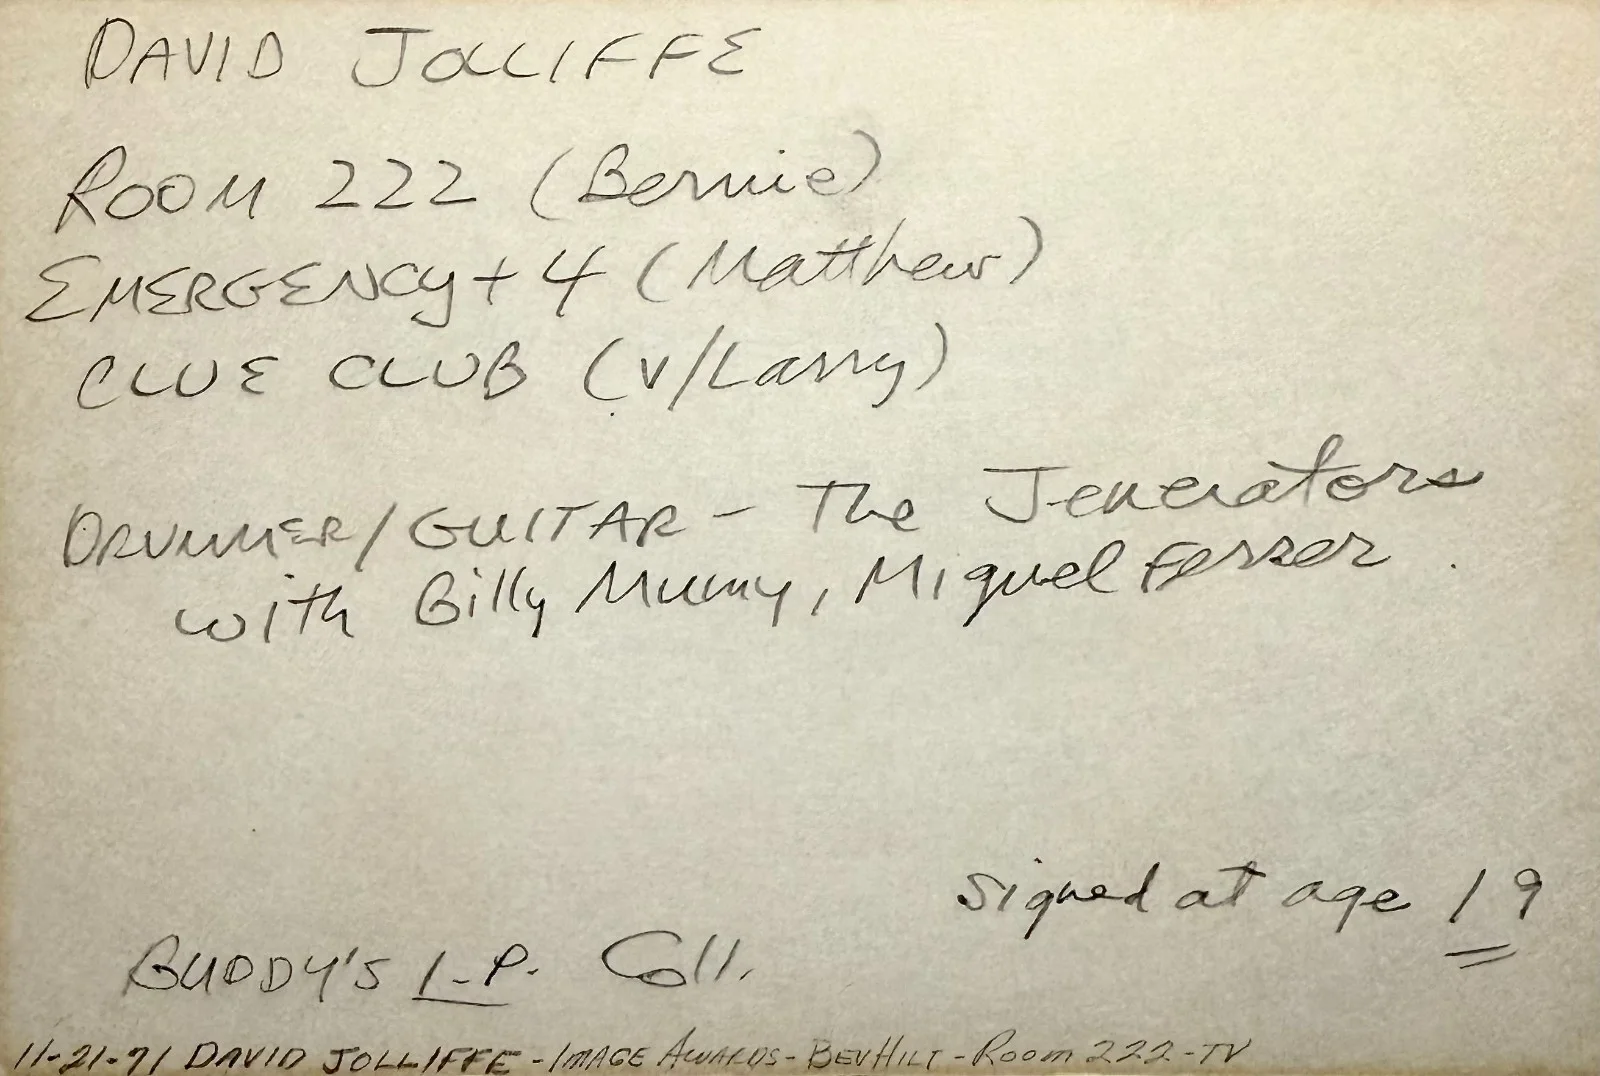 DAVID JOLLIFFE
ROOM 222 (Bernie)
EMERGENCY + 4 (Matthew)
CLUE CLUB (v/Larry)
DRUMMER/GUITAR - The Jenerators
with Billy Mumy, Miguel Ferrer.
signed at age 19
BUDDY'S L.P. Coll.
11-21-71 DAVID JOLLIFFE - IMAGE AWARDS - BEV HILT - ROOM 222 - TV